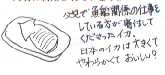 父兄で漁船関係の仕事を
している方が着付して
くださったイカ。
日本のイカは大きくて
やわらかくておいしい?